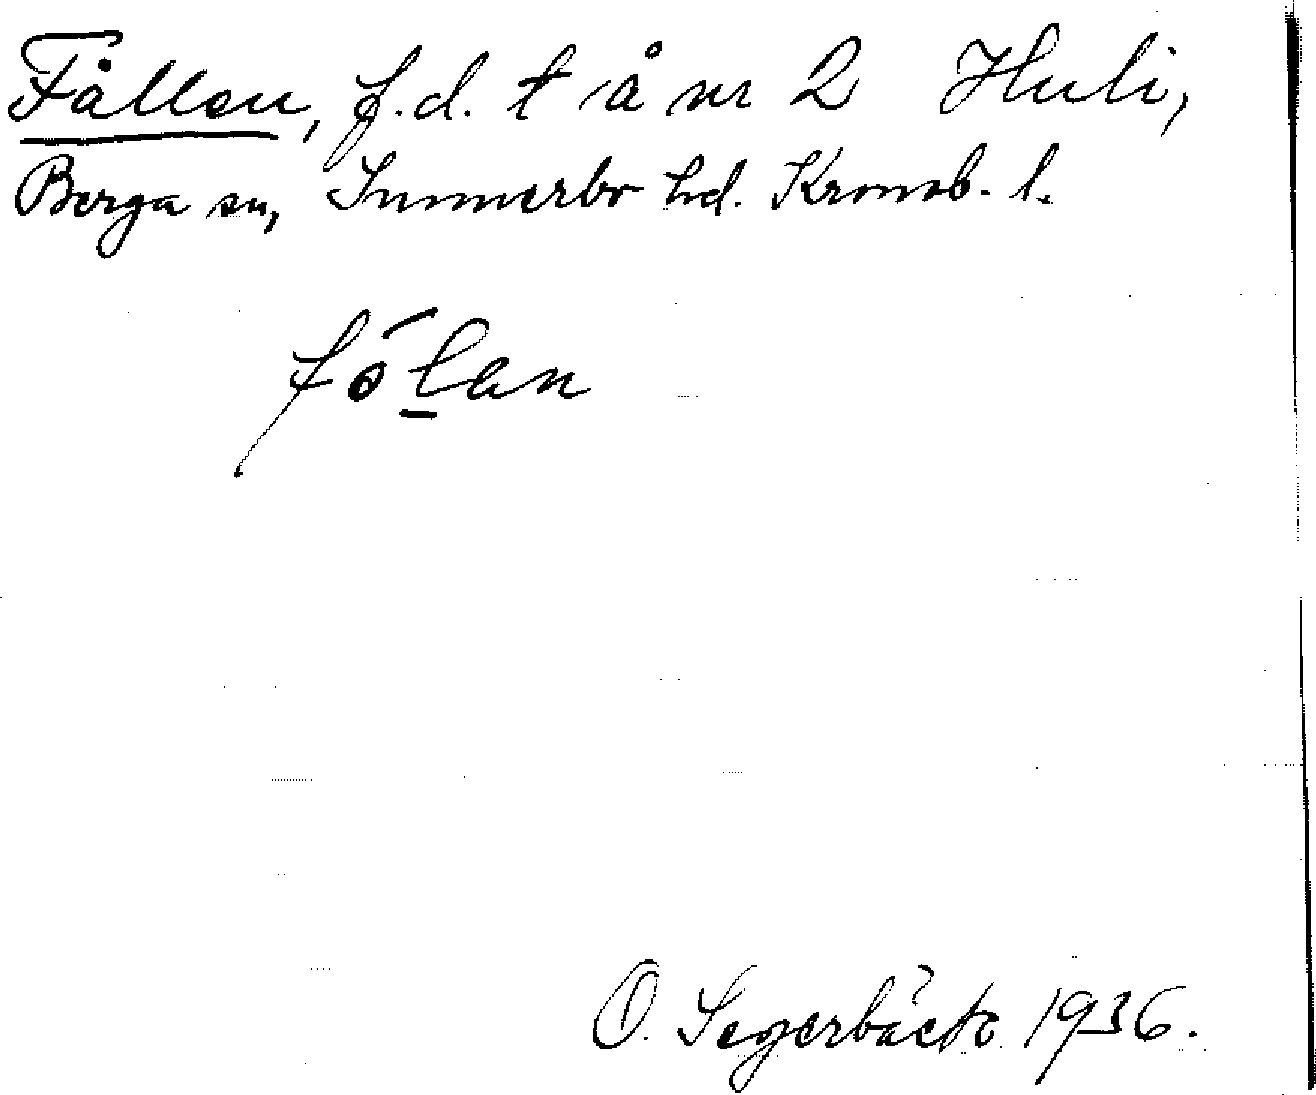 Fållen, f.d. t å nr 2 Huli,
Berga sn, Sunnerbo hd. Kronob. l.
fólan
O. Segerbäck 1936.